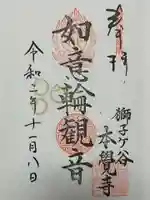 奉拝
如意輪觀音
獅子ケ谷
本覺寺
令和二年十一月八日